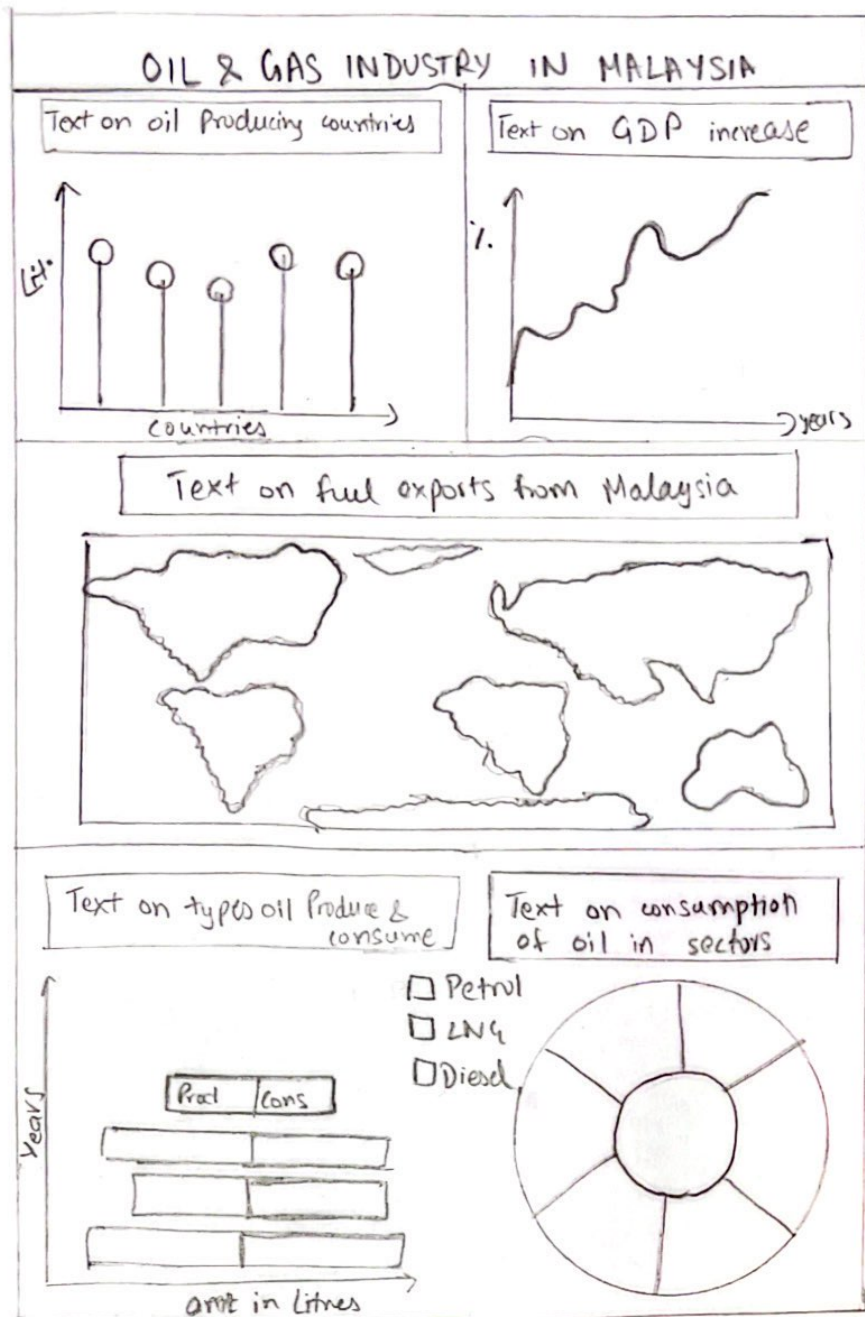 OIL & GAS INDUSTRY IN MALAYSIA
Text on oil Producing countries
Lit.
countries
Text on GDP increase
%
years
Text on fuel exports from Malaysia
Text on types oil Produce &
consume
Years
Prod Cons
amt in Litres
Petrol
LNG
Diesel
Text on consumption
of oil in sectors